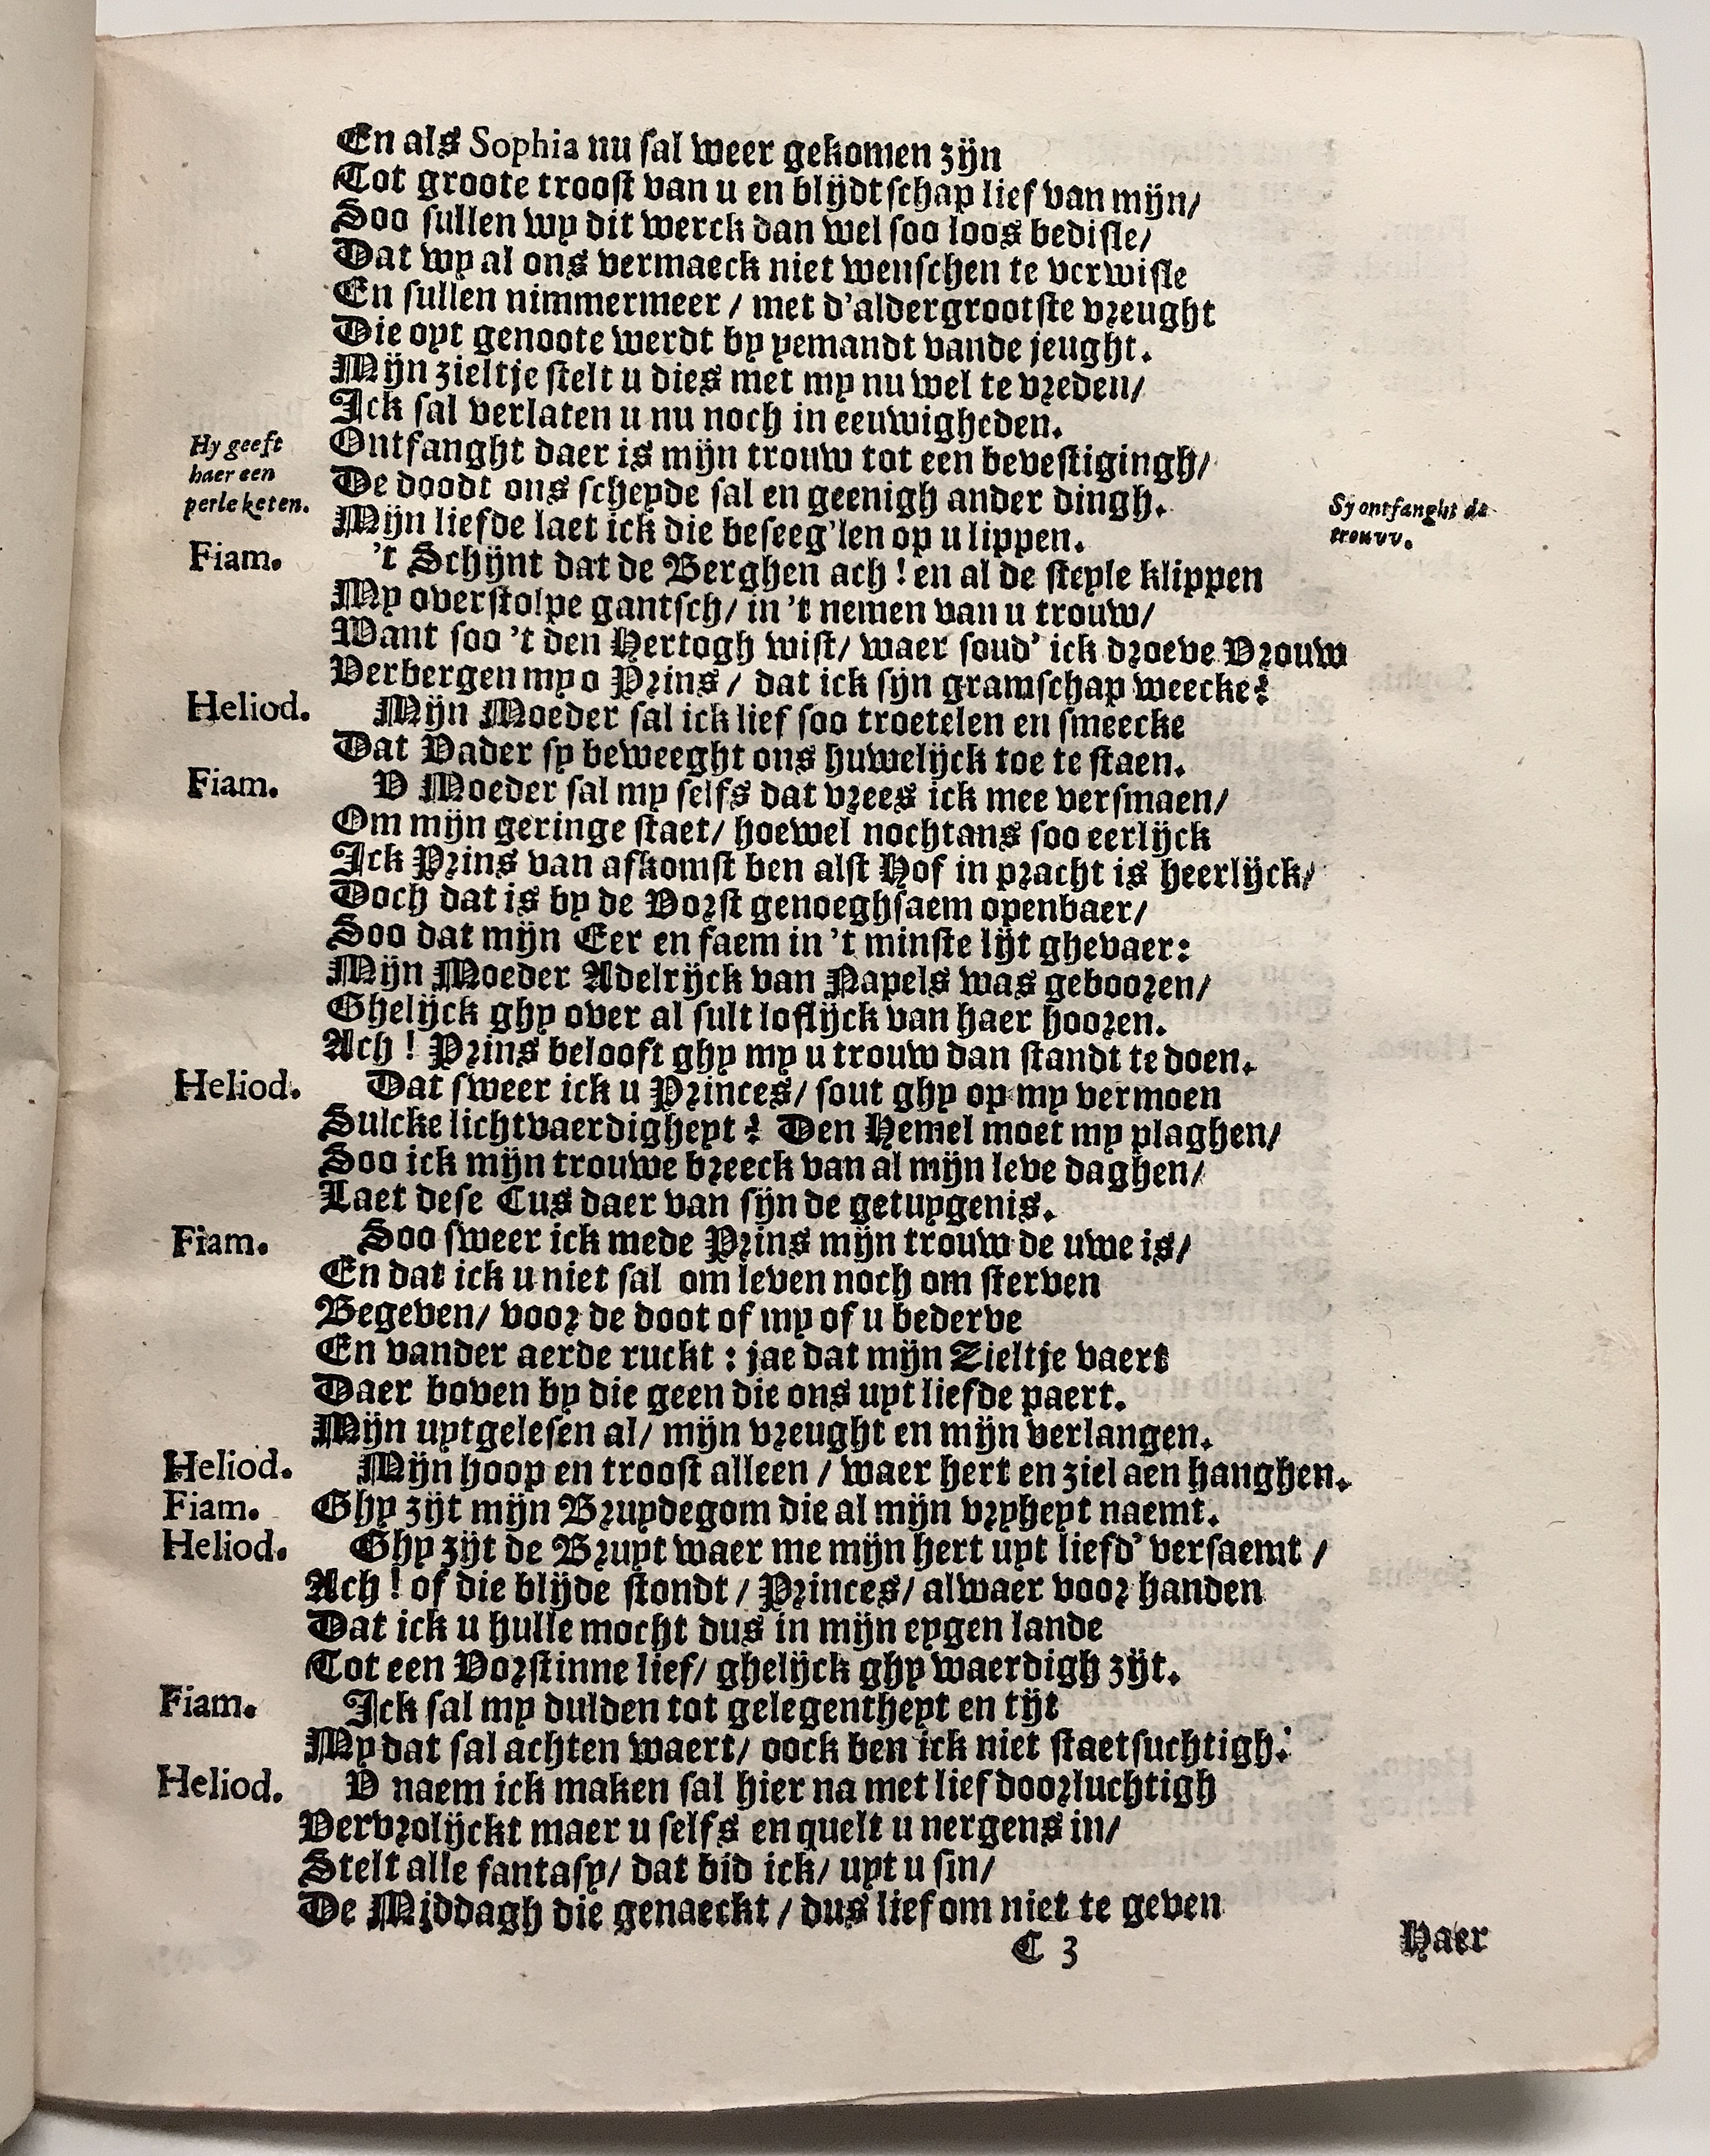 En als Sophia nu sal weer gekomen zijn
Tot groote troost van u en blijdtschap lief van mijn/
Soo sullen wy dit werck dan wel soo loos bedisle/
Dat wy al ons vermaeck niet wenschen te verwisle
En sullen nimmermeer / met d'aldergrootste vreught
Die oyt genoote werdt by yemandt vande jeught.
Mijn zieltje stelt u dies met my nu wel te vreden/
Ick sal verlaten u nu noch in eeuwigheden.
Hy geeft haer een perle keten.
Ontfanght daer is mijn trouw tot een bevestigingh/
De doodt ons scheyde sal en geenigh ander dingh.
Sy ontfanght de trouvv.
Mijn liefde laet ick die beseeg'len op u lippen.
Fiam. 't Schijnt dat de Berghen ach ! en al de steyle klippen
My overstolpe gantsch/ in 't nemen van u trouw/
Want soo 't den Hertogh wist/ waer soud' ick droeve Vrouw
Verbergen my o Prins / dat ick sijn gramschap weecke?
Heliod. Mijn Moeder sal ick lief soo troetelen en smeecke
Dat Vader sy beweeght ons huwelijck toe te staen.
Fiam. V Moeder sal my selfs dat vrees ick mee versmaen/
Om mijn geringe staet/ hoewel nochtans soo eerlijck
Ick Prins van afkomst ben alst Hof in pracht is heerlijck/
Doch dat is by de Vorst genoeghsaem openbaer/
Soo dat mijn Eer en faem in 't minste lijt ghevaer:
Mijn Moeder Adelrijck van Napels was gebooren/
Ghelijck ghy over al sult loflijck van haer hooren.
Ach ! Prins belooft ghy my u trouw dan standt te doen.
Heliod. Dat sweer ick u Princes/ sout ghy op my vermoen
Sulcke lichtvaerdigheyt ? Den Hemel moet my plaghen/
Soo ick mijn trouwe breeck van al mijn leve daghen/
Laet dese Cus daer van sijn de getuygenis.
Fiam. Soo sweer ick mede Prins mijn trouw de uwe is/
En dat ick u niet sal om leven noch om sterven
Begeven/ voor de doot of my of u bederve
En vander aerde ruckt : jae dat mijn Zieltje vaert
Daer boven by die geen die ons uyt liefde paert.
Mijn uytgelesen al/ mijn vreught en mijn verlangen.
Heliod. Mijn hoop en troost alleen / waer hert en ziel aen hanghen.
Fiam. Ghy zijt mijn Bruydegom die al mijn vryheyt naemt.
Heliod. Ghy zijt de Bruyt waer me mijn hert uyt liefd' versaemt /
Ach ! of die blijde stondt / Princes/ alwaer voor handen
Dat ick u hulle mocht dus in mijn eygen lande
Tot een Vorstinne lief/ ghelijck ghy waerdigh zijt.
Fiam. Ick sal my dulden tot gelegentheyt en tijt
My dat sal achten waert/ oock ben ick niet staetsuchtigh.
Heliod. V naem ick maken sal hier na met lief doorluchtigh
Vervrolijckt maer u selfs en quelt u nergens in/
Stelt alle fantasy/ dat bid ick/ uyt u sin/
De Middagh die genaeckt / dus lief om niet te geven
C 3
Haer